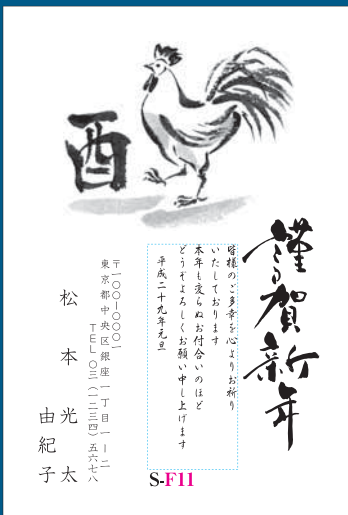 酉
謹賀新年
皆様のご多幸を心よりお祈り
いたしております
本年も変らぬお付合いのほど
どうぞよろしくお願い申し上げます
平成二十九年元旦
〒一〇〇-〇〇〇一
東京都中央区銀座一丁目一ー二
TEL〇三(一二三四)五六七八
松本光太
由紀子
S-F11